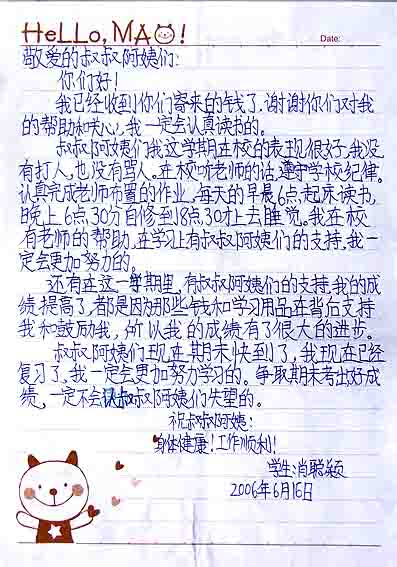 HELLO, MAO!
Date:
敬爱的叔叔阿姨们:
你们好!
我已经收到你们寄来的钱了.谢谢你们对我
的帮助和关心,我一定会认真读书的。
叔叔阿姨们我这学期在校的表现很好,我没
有打人,也没有骂人。在校听老师的话,遵守学校纪律。
认真完成老师布置的作业,每天的早晨6点,起床读书,
晚上6点30分自修到8点30才上去睡觉。我在校
有老师的帮助,在学习上有叔叔阿姨们的支持,我一
定会更加努力的。
还有在这一学期里,有叔叔阿姨们的支持,我的成
绩提高了,都是因为那些钱和学习用品在背后支持
我和鼓励我,所以我的成绩有了很大的进步。
叔叔阿姨们现在期末快到了,我现在已经
复习了,我一定会更加努力学习的。争取期末考出好成
绩,一定不会让叔叔阿姨们失望的。
祝叔叔阿姨:
身体健康!工作顺利!
学生:肖聪颖
2006年6月16日